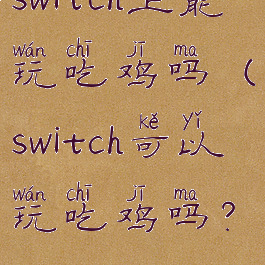 switch上能
wán chī jī ma
玩吃鸡吗（
kě yǐ
switch可以
wán chī jī ma
玩吃鸡吗？